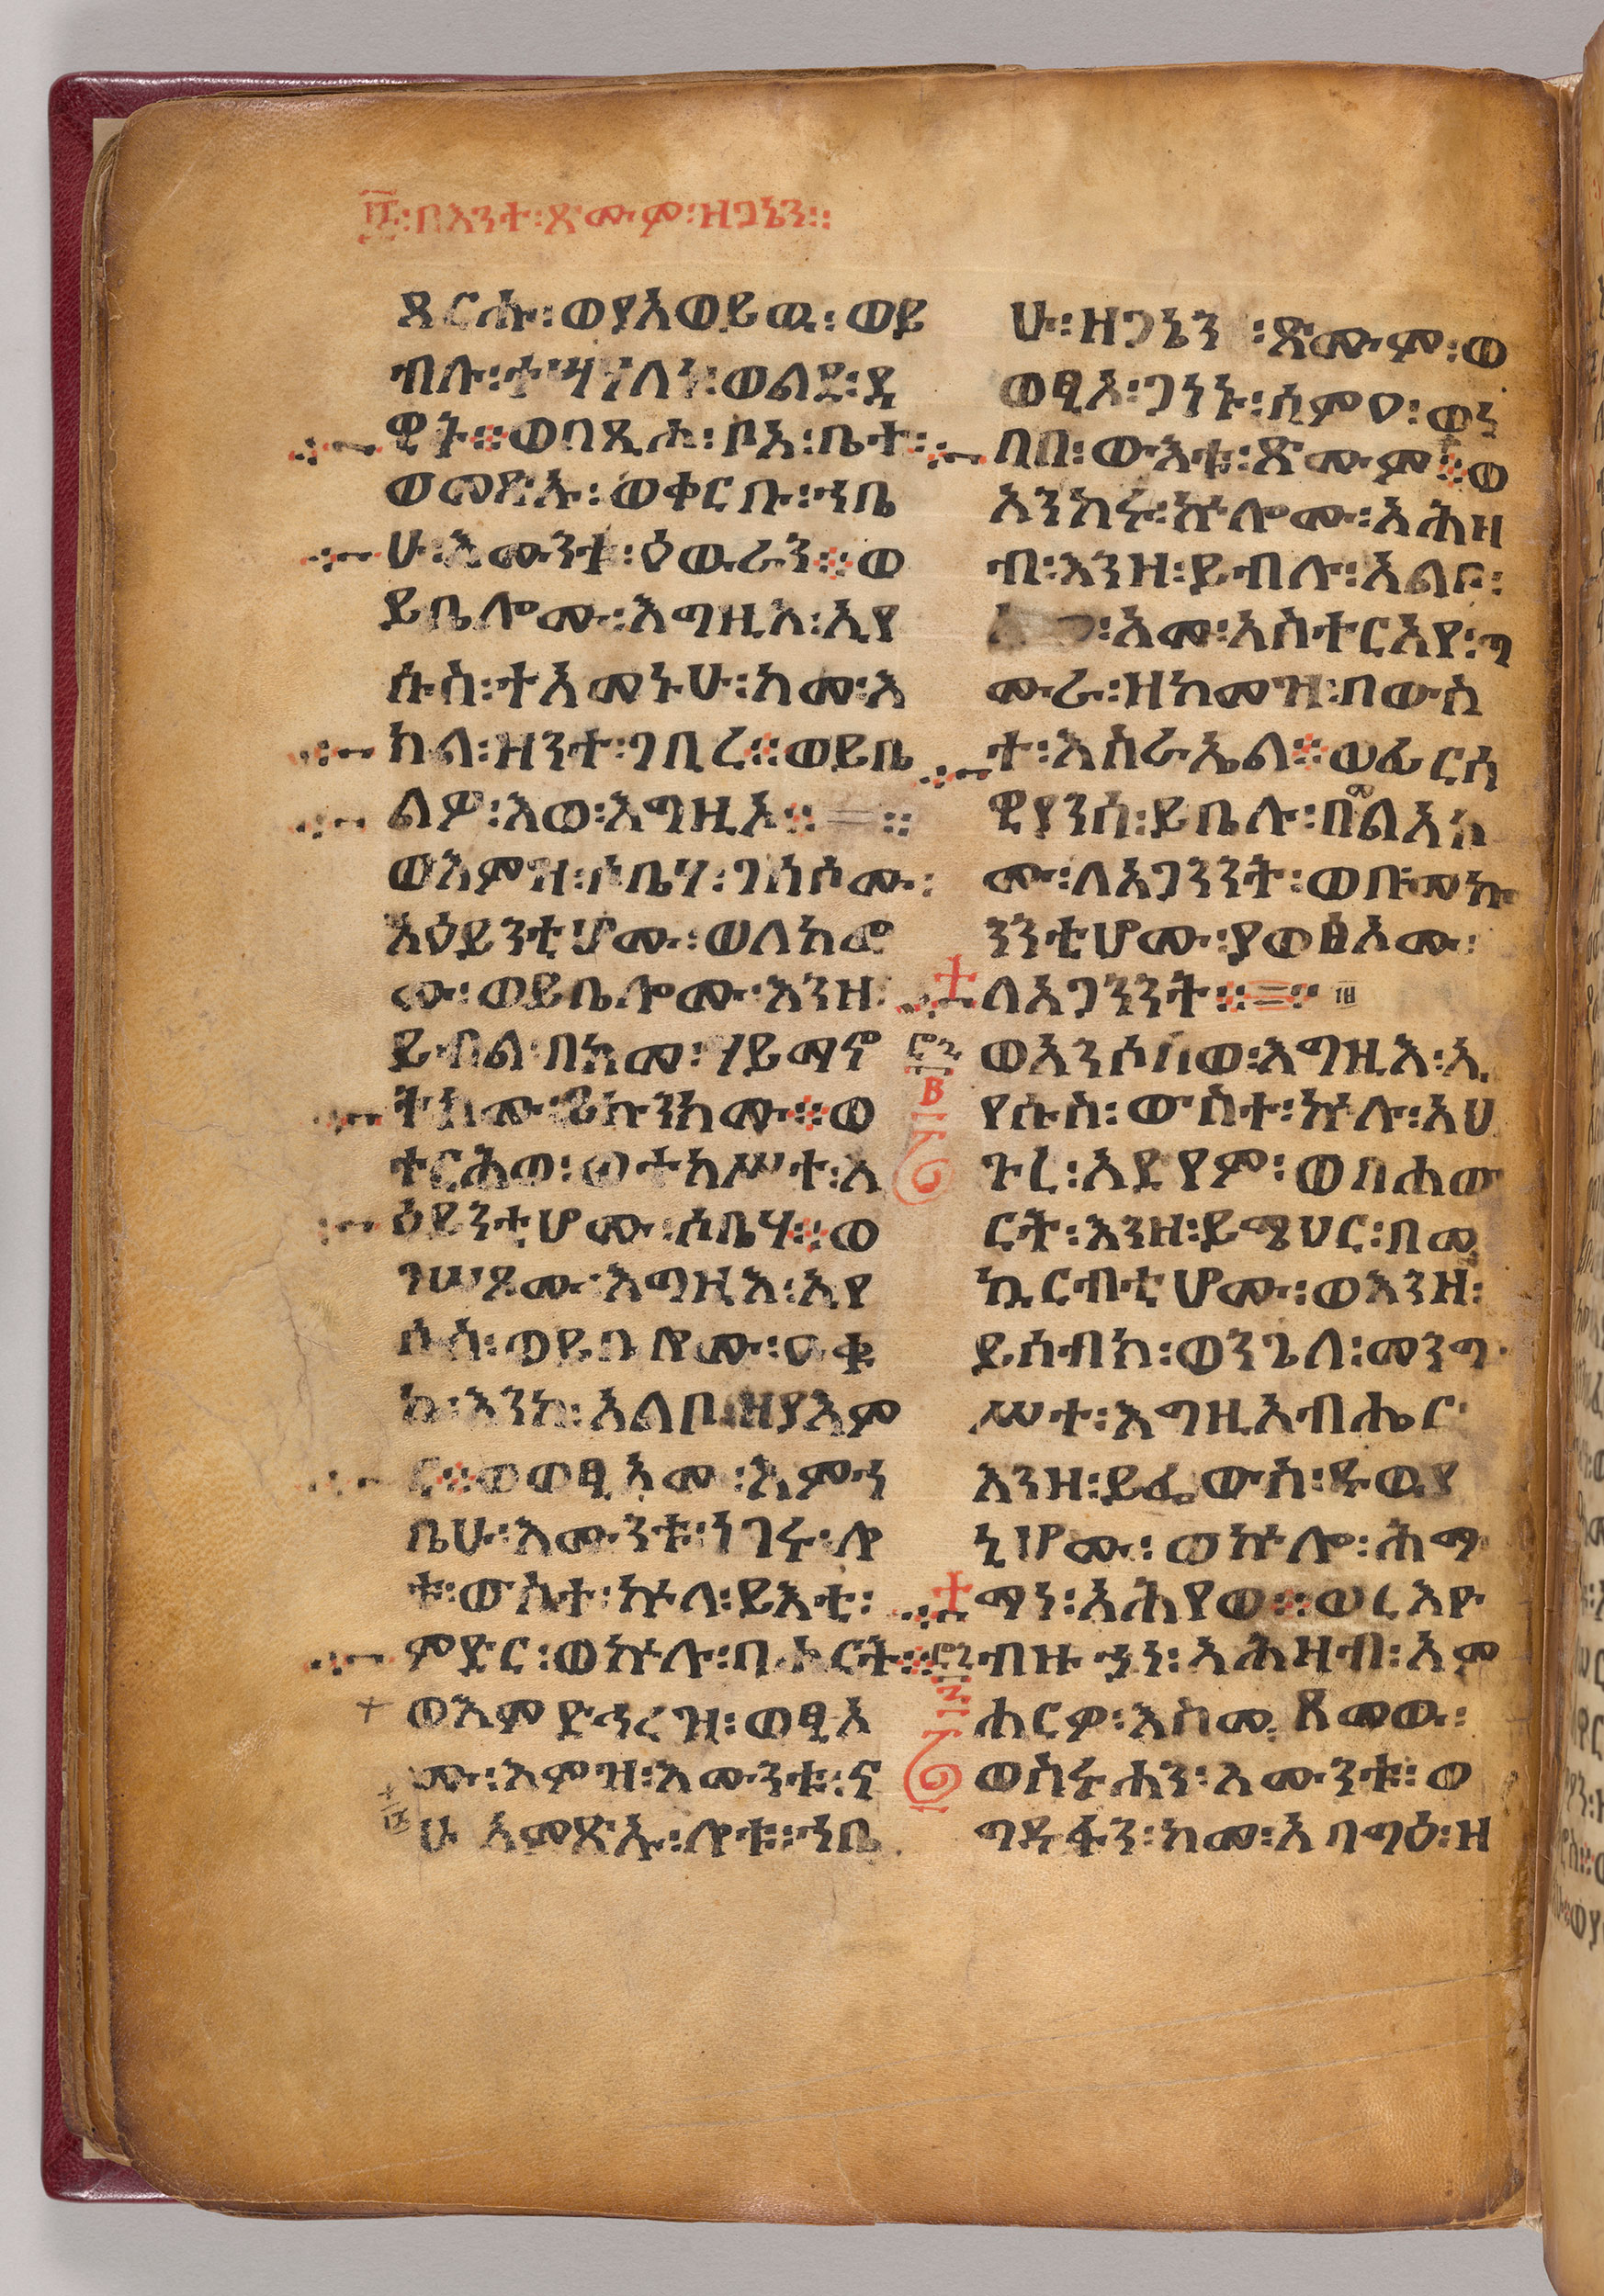 ፲፯፡በእንተ፡ጽሙም፡ዘጋኔን፡፡
ጸርሑ፡ወያአወይዉ፡ወይ
ብሉ፡ተሣሃለነ፡ወልደ፡ዳ
ዊት፨ወበጺሖ፡ቦአ፡ቤተ፡
ወመጽኡ፡ወቀርቡ፡ኀቤ
ሁ፡እሙንቱ፡ዕዉራን፨ወ
ይቤሎሙ፡እግዚእ፡ኢየ
ሱስ፡ተአመኑሁ፡ከመ፡እ
ክል፡ዘንተ፡ገቢረ፨ወይቤ
ልዎ፡እወ፡እግዚኦ፨
ወእምዝ፡ሶቤሃ፡ገሰሶሙ፡
አዕይንቲሆሙ፡ወለከፎ
ሙ፡ወይቤሎሙ፡እንዘ፡
ይብል፡በከመ፡ሃይማኖ
ትክሙ፡ይኩንክሙ፨ወ
ተርሕወ፡ወተከሥተ፡አ
ዕይንቲሆሙ፡ሶቤሃ፨ወ
ገሠጾሙ፡እግዚእ፡ኢየ
ሱስ፡ወይቤሎሙ፡ዑቁ
ኬ፡እንከ፡አልቦ፡ዘያአም
ር፨ወወፂኦሙ፡እምኀ
ቤሁ፡እሙንቱ፡ነገሩ፡ሎ
ቱ፡ውስተ፡ኵላ፡ይእቲ፡
ምድር፡ወኵሉ፡በሐርት፨
ወእምድኅረዝ፡ወፂኦ
ሙ፡እምዝ፡እሙንቱ፡ናሁ
ሁ አምጽኡ፡ሎቱ፡ኀቤ
ሁ፡ዘጋኔን፡ጽሙም፡ወ
ወፂኦ፡ጋኔኑ፡ሰምዐ፡ወነ
በበ፡ውእቱ፡ጽሙም፨ወ
አንከሩ፡ኵሎሙ፡አሕዛ
ብ፡እንዘ፡ይብሉ፡አልቦ፡
አመ፡አስተርአየ፡ግ
ሙራ፡ዘከመዝ፡በውስ
ተ፡እስራኤል፨ወፈርሳ
ዊያንሰ፡ይቤሉ፡በመልአኮ
ሙ፡ለአጋንንት፡ወበመኰ
ንንቲሆሙ፡ያወፅኦሙ፡
ለአጋንንት፨
ወአንሶሰወ፡እግዚእ፡ኢ
የሱስ፡ውስተ፡ኵሉ፡አህ
ጉረ፡አደያም፡ወበሐው
ርት፡እንዘ፡ይሜህር፡በመ
ኳርብቲሆሙ፡ወእንዘ፡
ይሰብክ፡ወንጌለ፡መንግ
ሥተ፡እግዚአብሔር፡
እንዘ፡ይፌውስ፡ዱዉያ
ኒሆሙ፡ወኵሎ፡ሕማ
ማነ፡አሕየወ፨ወረእዮ
ብዙኃነ፡አሕዛብ፡አም
ሐርዎ፡እስመ፡ጸመዉ፡
ወስሩሐን፡እሙንቱ፡ወ
ግዱፋን፡ከመ፡አባግዕ፡ዘ